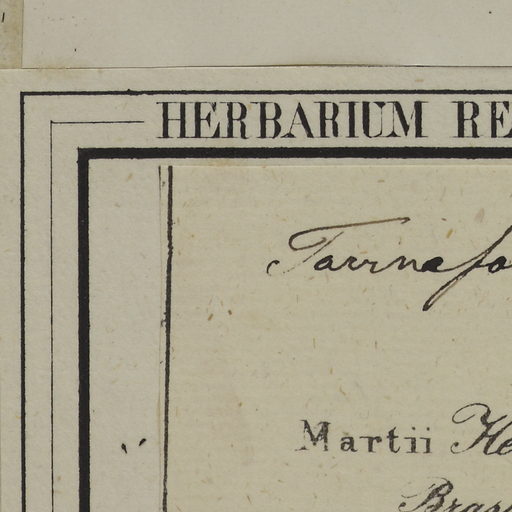 HERBARIUM RE
Tournefo
Martii He
Bras